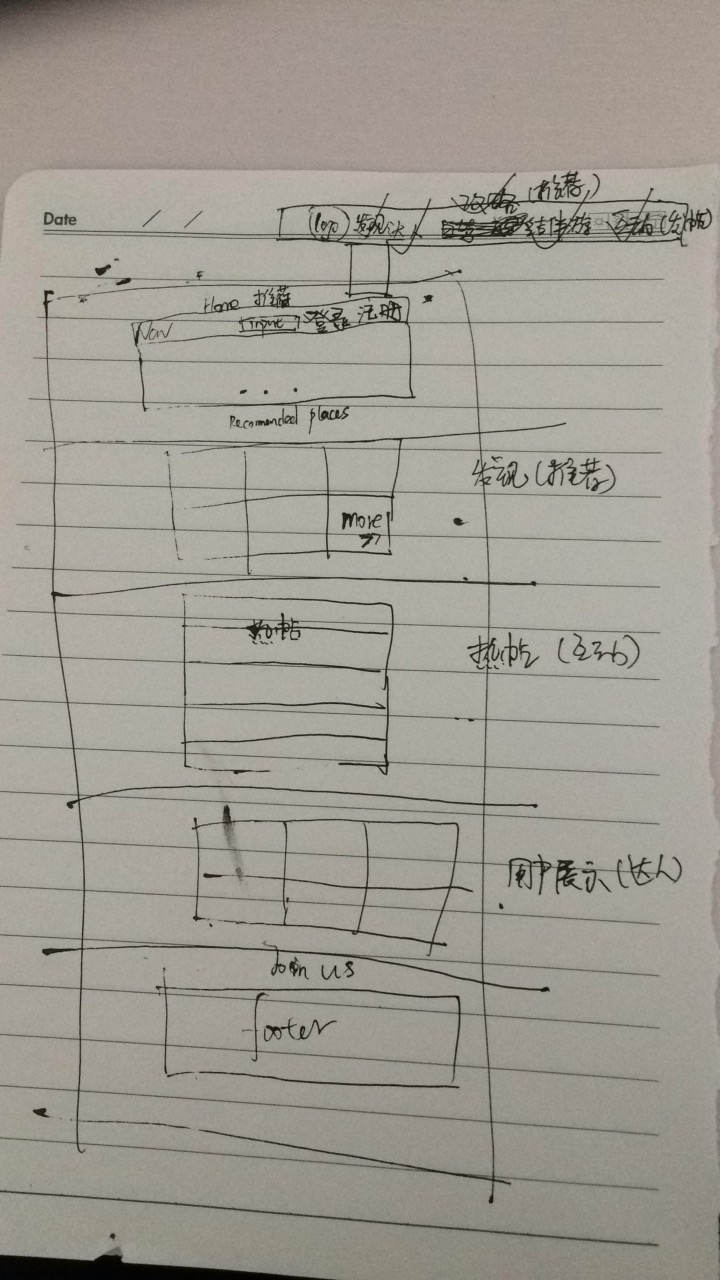 Date / /
攻略(推荐)
logo 发现 达人 结伴游 互动(发帖)
Home 推荐
Nav input 登录 注册
Recommended places
发现(推荐)
More
>>
热帖
热帖 (互动)
用户展示(达人)
Join us
footer